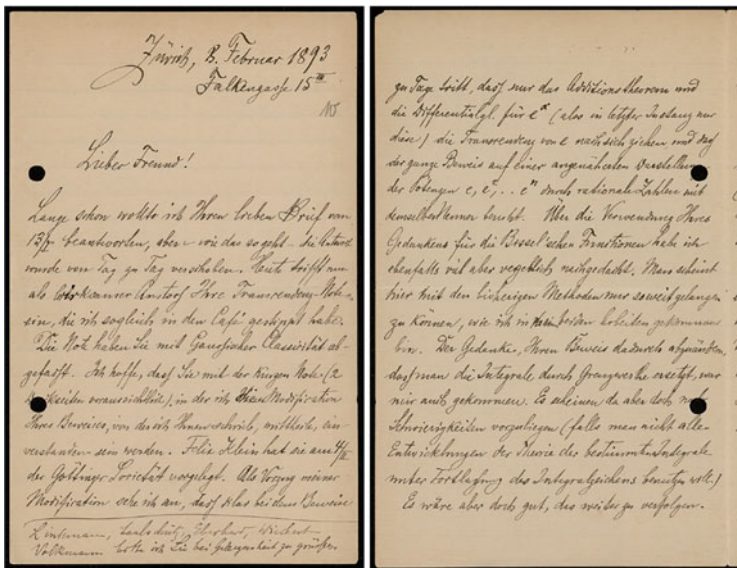 Zürich, 8. Februar 1893
Falkengasse 15 III
Lieber Freund!
Lange schon wollte ich Ihren lieben Brief vom
13/I beantworten, aber – wie das so geht – die Antwort
wurde von Tag zu Tag verschoben. Heute trifft nun
als wirksamer Anstoß Ihre Transcendenz-Note
ein, die ich sogleich in den Café gestippt habe.
Die Note haben Sie mit Gaussischer Classicität ab-
gefasst. Ich hoffe, dass Sie mit der kurzen Note (2
Druckseiten voraussichtlich), in der ich eine Modification
Ihres Beweises, von der ich Ihnen schrieb, mitteile, ein-
verstanden sein werden. Felix Klein hat sie am 4/II
der Göttinger Societät vorgelegt. Als Vorzug meiner
Modification sehe ich an, dass klar bei dem Beweise
Lindemann, Eberhard, Wiechert
Volkmann bitte ich Sie bei Gelegenheit zu grüßen.
zu Tage tritt, dass nur das Additionstheorem und
die Differentialgl. für e^x (also in letzter Instanz nur
diese) die Transcendenz von e nach sich ziehen und dass
der ganze Beweis auf einer angenäherten Darstellung
der Potenzen e, e², .. eⁿ durch rationale Zahlen mit
demselben Nenner beruht. Über die Verwendung Ihres
Gedankens für die Bessel'schen Functionen habe ich
ebenfalls viel aber vergeblich nachgedacht. Man scheint
hier mit den bisherigen Methoden nur soweit gelangen
zu können, wie ich in beiden Arbeiten gekommen
bin. Der Gedanke, Ihren Beweis dadurch abzuändern,
dass man die Integrale durch Grenzwerthe ersetzt, war
mir auch gekommen. Es scheinen da aber doch noch
Schwierigkeiten vorzuliegen (falls man nicht alle
Entwicklungen der Theorie der bestimmten Integrale
unter Fortlassung des Integralzeichens benutzen will.)
Es wäre aber doch gut, das weiter zu verfolgen.